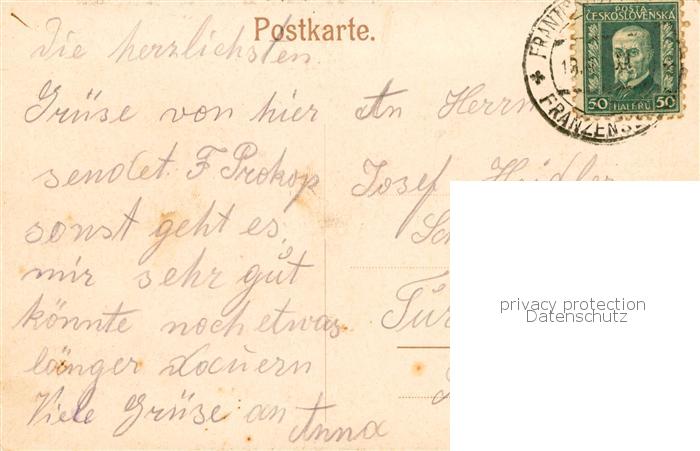 Postkarte.
Die herzlichsten
Grüse von hier
sendet F Prokop
sonst geht es
mir sehr gut
könnte noch etwas
länger dauern
Viele Grüse an
Anna
An Herrn
Josef Heidler
POSTA
ČESKOSLOVENSKÁ
50 HALÉŘŮ 50
privacy protection
Datenschutz